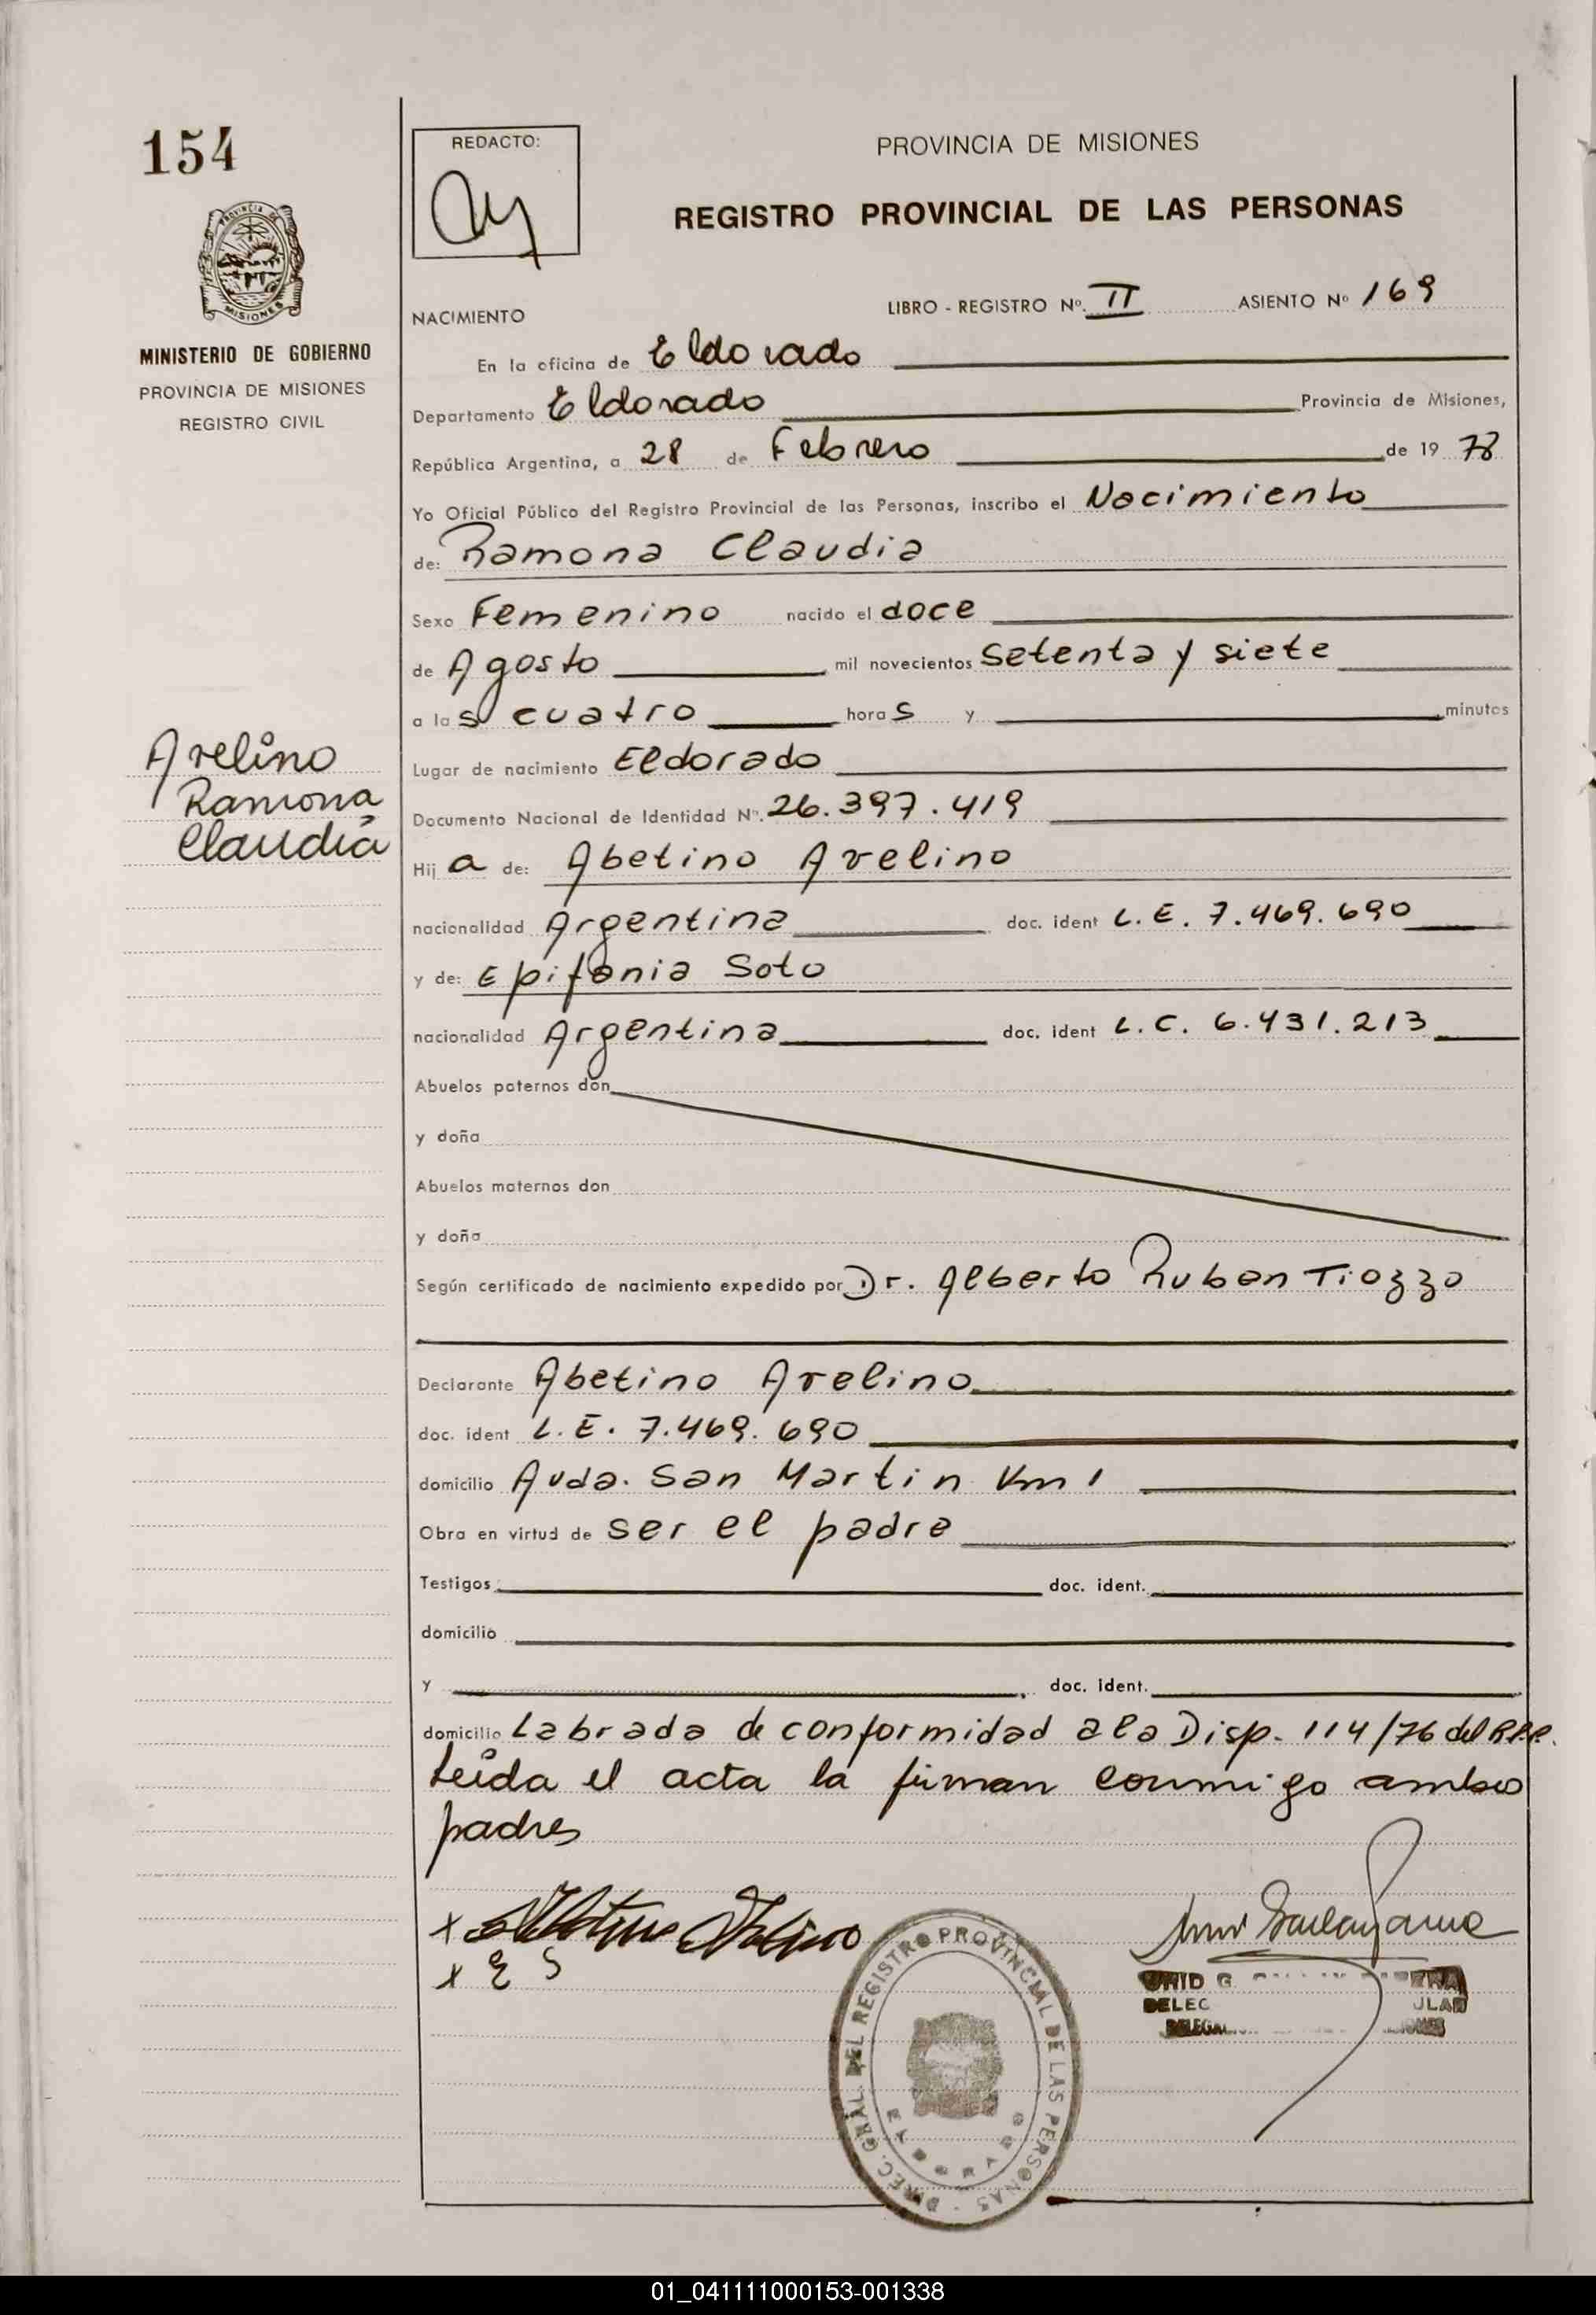 154
REDACTO:
PROVINCIA DE MISIONES
REGISTRO PROVINCIAL DE LAS PERSONAS
PROVINCIA DE
MISIONES
MINISTERIO DE GOBIERNO
PROVINCIA DE MISIONES
REGISTRO CIVIL
LIBRO - REGISTRO Nº. II ASIENTO Nº 169
NACIMIENTO
En la oficina de Eldorado
Departamento Eldorado Provincia de Misiones,
República Argentina, a 28 de Febrero de 19 78
Yo Oficial Público del Registro Provincial de las Personas, inscribo el Nacimiento
de: Ramona Claudia
Sexo Femenino nacido el doce
de Agosto mil novecientos setenta y siete
a las cuatro horas y minutos
Avelino
Ramona
Claudia
Lugar de nacimiento Eldorado
Documento Nacional de Identidad Nº. 26.397.419
Hij a de: Abetino Avelino
nacionalidad Argentina doc. ident L.E. 7.469.690
y de: Epifania Soto
nacionalidad Argentina doc. ident L.C. 6.431.213
Abuelos paternos don
y doña
Abuelos maternos don
y doña
Según certificado de nacimiento expedido por Dr. Alberto Ruben Tiozzo
Declarante Abetino Avelino
doc. ident L.E. 7.469.690
domicilio Avda. San Martin Km 1
Obra en virtud de ser el padre
Testigos doc. ident.
domicilio
y doc. ident.
domicilio Labrada de conformidad a la Disp. 114/76 del R.P.P.
Leida el acta la firman conmigo ambos
padres
x
x E S
DIREC. GRAL. DEL REGISTRO PROVINCIAL DE LAS PERSONAS -
ELDORADO
01_041111000153-001338